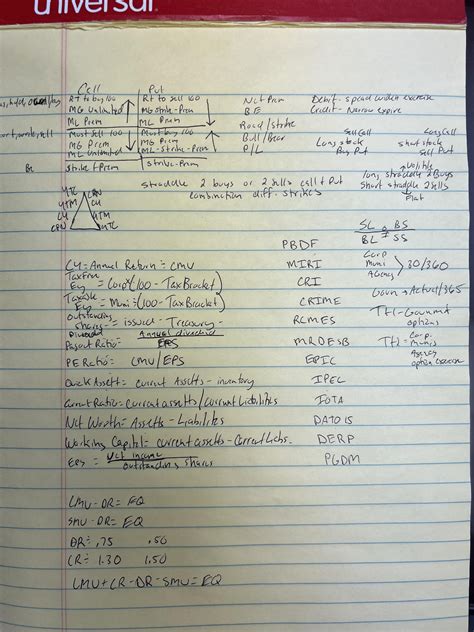 universal
Call Put
Rt to buy 100 Rt to sell 100
MG Unlimited MG Strike-Prem
ML Prem ML Prem
Must sell 100 Must buy 100
MG Prem MG Prem
ML Unlimited ML-Strike-Prem
BE Strike+Prem Strike-Prem
Net Prem
BE
Road/strike
Bull/Bear
P/L
Debit-spread widen exercise
Credit-Narrow expire
Sell Call Long Call
Long stock short stock
Buy Put Sell Put
Volitile
long straddle 2 Buys
Short straddle 2 sells
Flat
straddle 2 buys or 2 sells call+Put
combination diff. strikes
YTC CPN
YTM CY
CY YTM
CPN YTC
SL BS
BL SS
PBDF
CY=Annual Return ÷ CMV MIRI
Corp
Muni 30/360
Agency
Tax Free Eq = Corp(100-Tax Bracket) CRI
Goun→Actual/365
Taxable Eq = Muni÷(100-Tax Bracket) CRIME
Outstanding Shares= issued-Treasury RCMES
T+1-Gounmt
options
Dividend Payout Ratio= Annual dividend
EPS MRDESB
T+2- Corp.
Munis
Agency
option exercise
PE Ratio= CMV/EPS EPIC
Quick Assets= current Assets-inventory IPEL
Current Ratio=current assets/current Liabilites IOTA
Net Worth=Assets-Liabilites DATOIS
Working Capital=current assets-Current Liabs. DERP
EPS = Net income
outstanding shares PGDM
LMV-DR=EQ
SMV-DR=EQ
DR= .75 .50
CR= 1.30 1.50
LMV+CR-DR-SMV=EQ